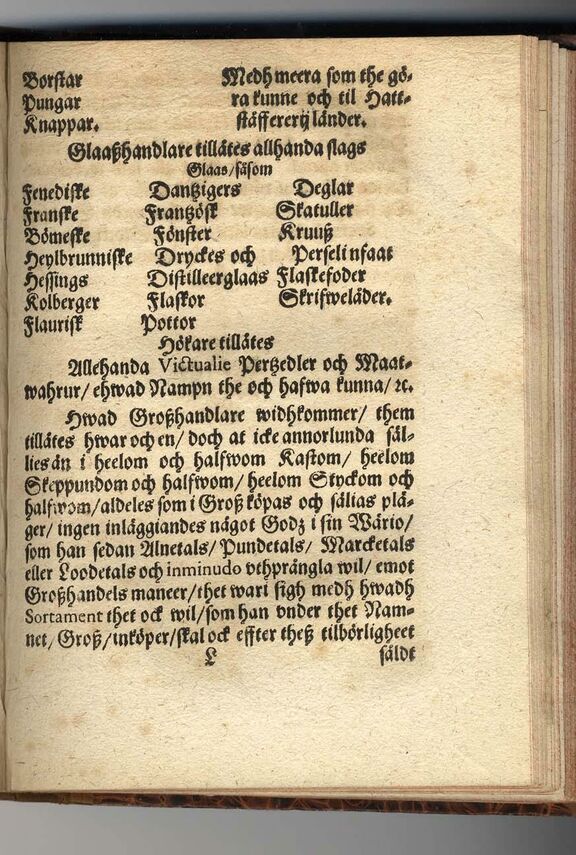 Borstar Medh meera som the gö-
Pungar ra kunne och til Hatt-
Knappar. stäffererij länder.
Glaaßhandlare tillätes allhanda slags
Glaas/såsom
Fenediske Dantzigers Deglar
Franske Frantzösk Skatuller
Bömeske Fönster Kruuß
Heylbrunniske Dryckes och Perselin faat
Hessings Distilleerglaas Flaskefoder
Kolberger Flaskor Skrifweläder.
Flaurisk Pottor
Hökare tillätes
Allehanda Victualie Pertzedler och Maat-
wahrur/ ehwad Nampn the och hafwa kunna/ ꝛc.
Hwad Großhandlare widhkommer/ them
tillätes hwar och en/ doch at icke annorlunda säl-
lies än i heelom och halfwom Kastom/ heelom
Skeppundom och halfwom/ heelom Styckom och
halfwom/aldeles som i Groß köpas och sälias plä-
ger/ ingen inläggiandes något Godz i sin Wärio/
som han sedan Alnetals/ Pundetals/ Marcketals
eller Loodetals och inminudo vthprångla wil/ emot
Großhandels maneer/thet wari sigh medh hwadh
Sortament thet ock wil/som han vnder thet Nam-
net/ Groß/inköper/skal ock effter theß tilbörligheet
L säldt